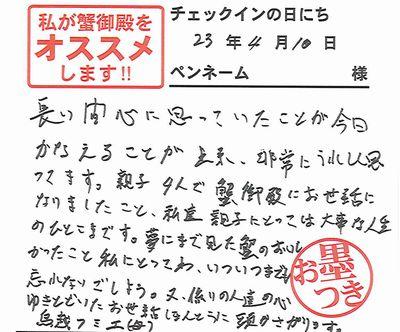 私が蟹御殿を
オススメ
します!!
チェックインの日にち
23年4月10日
ペンネーム 様
長い間心に思っていたことが今日
かなえることが出来、非常にうれしく思
ってます。親子4人で蟹御殿にお世話に
なりましたこと、私達親子にとっては大事な人生
のひとこまです。夢にまで見た蟹のおいし
かったこと私にとってわ、いついつまでも
忘れないでしょう。又、係りの人達の心
ゆきとどいたお世話ほんとうに頭がさがります。
鳥越フミエ(母)
お墨
つき